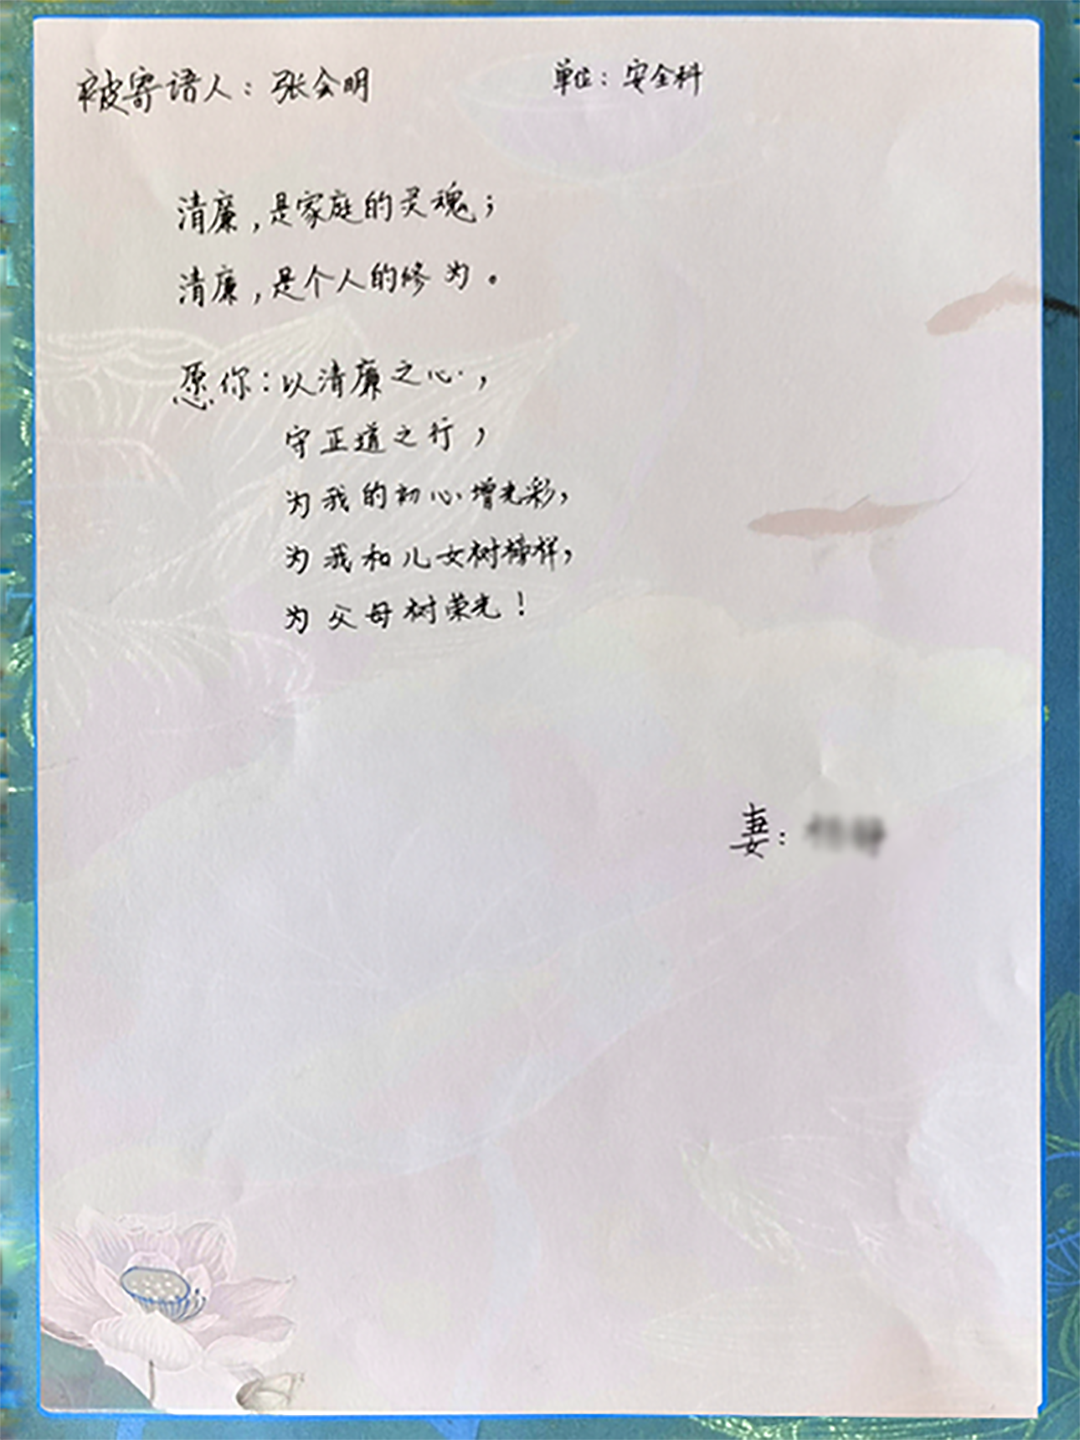 被寄语人：张会明 单位：安全科
清廉，是家庭的灵魂；
清廉，是个人的修为。
愿你：以清廉之心，
守正道之行，
为我的初心增光彩，
为我和儿女树榜样，
为父母树荣光！
妻：